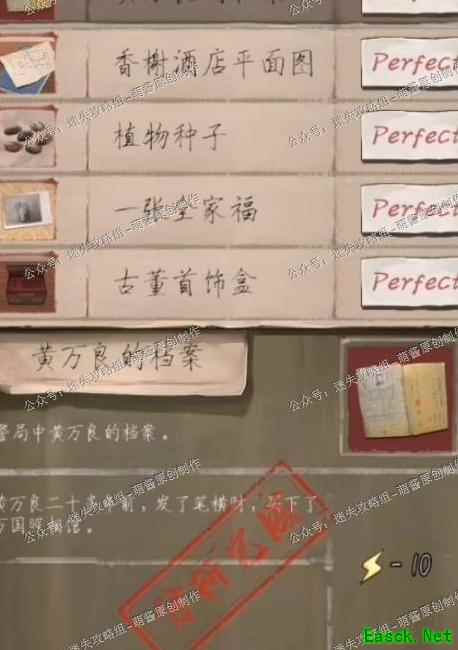 香榭酒店平面图
Perfect
植物种子
Perfect
一张全家福
Perfect
古董首饰盒
Perfect
黄万良的档案
警局中黄万良的档案。
黄万良二十多年前，发了笔横财，买下了
万国照相馆。
-10
公众号：迷失攻略组-萌酱原创制作
Easck.Net